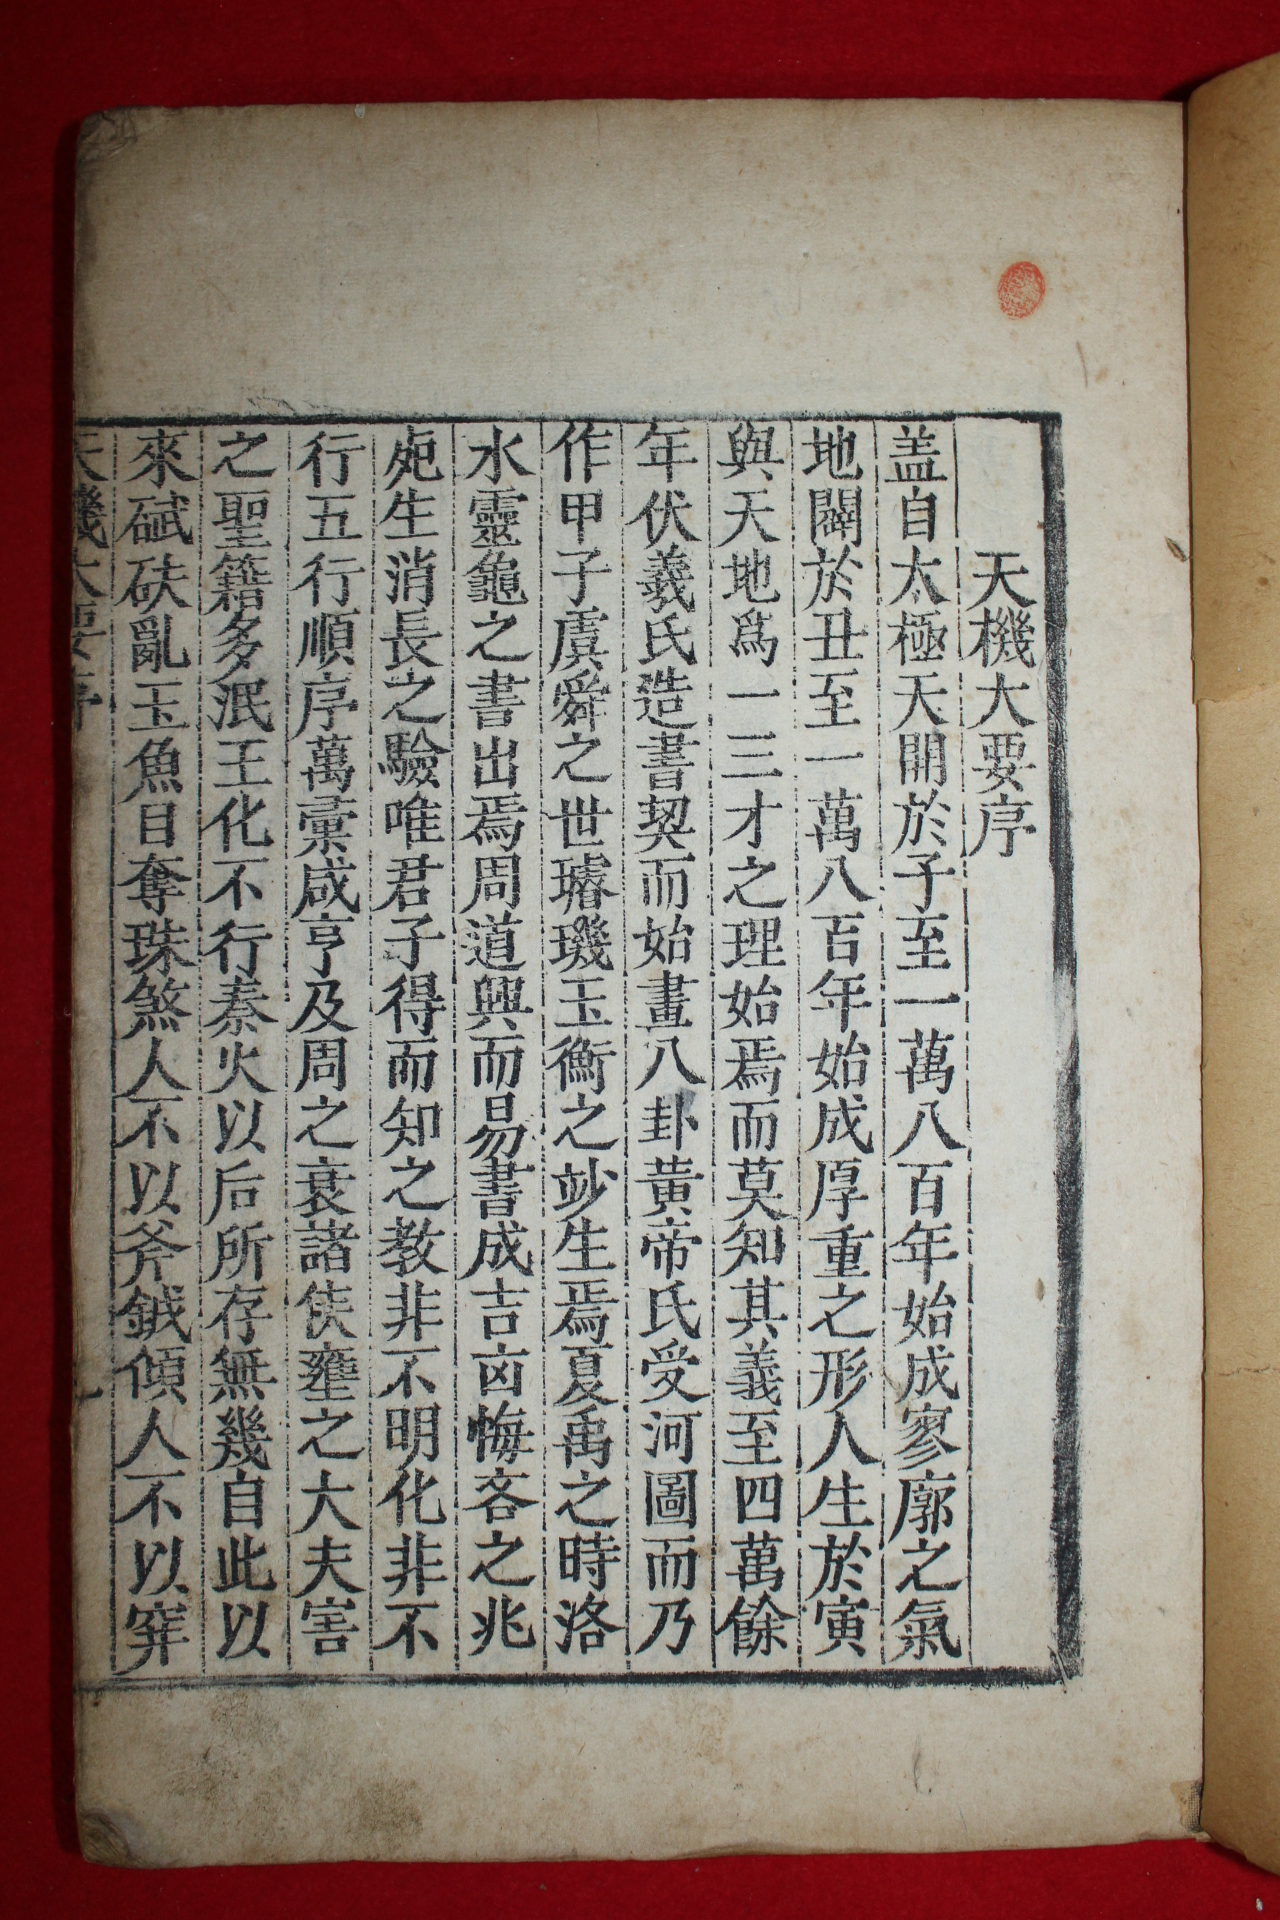 天機大要序
盖自太極天開於子至一萬八百年始成寥廓之氣
地闢於丑至一萬八百年始成厚重之形人生於寅
與天地爲一三才之理始焉而莫知其義至四萬餘
年伏羲氏造書契而始畫八卦黃帝氏受河圖而乃
作甲子虞舜之世璿璣玉衡之玅生焉夏禹之時洛
水靈龜之書出焉周道興而易書成吉凶悔吝之兆
處生消長之驗唯君子得而知之教非不明化非不
行五行順序萬彙咸亨及周之衰諸侯壅之大夫害
之聖籍多泯王化不行秦火以后所存無幾自此以
來碔砆亂玉魚目奪珠煞人不以斧鉞傾人不以穽
天機大要序